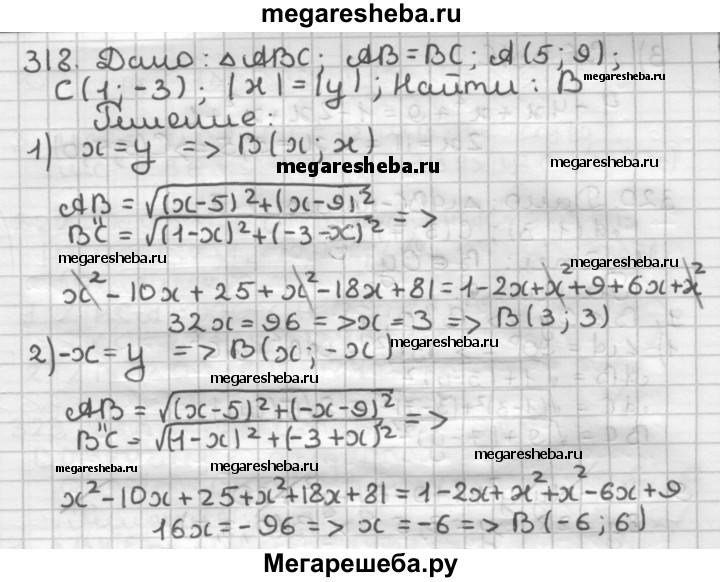 megaresheba.ru
318. Дано: △ABC; AB=BC; A(5; 9);
C(1; -3); |x|=|y|; Найти: B megaresheba.ru
Решение:
1) x=y => B(x; x) megaresheba.ru
megaresheba.ru
AB = √(x-5)²+(x-9)²
" =>
BC = √(1-x)²+(-3-x)²
megaresheba.ru megaresheba.ru
x²-10x+25+x²-18x+81=1-2x+x²+9+6x+x²
32x=96 => x=3 => B(3; 3)
megaresheba.ru
2) -x=y => B(x; -x) megaresheba.ru
megaresheba.ru
AB = √(x-5)²+(-x-9)²
" =>
BC = √(1-x)²+(-3+x)²
megaresheba.ru megaresheba.ru megaresheba.ru
x²-10x+25+x²+18x+81=1-2x+x²+x²-6x+9
16x=-96 => x=-6 => B(-6; 6)
Мегарешеба.ру